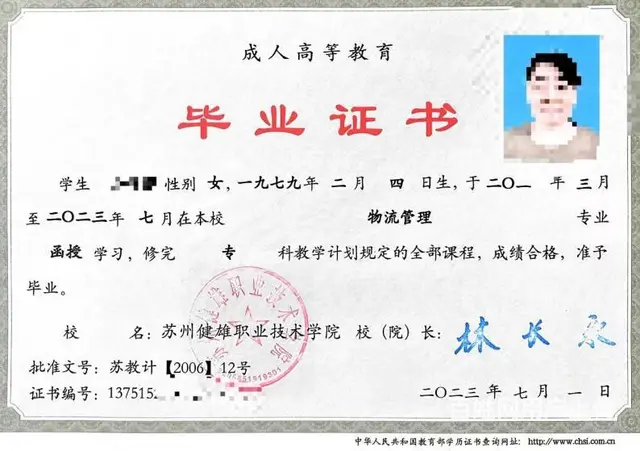 成人高等教育
毕业证书
学生 性别 女，一九七九年 二月 四日生，于二〇一 年 三月
至二〇二三年 七月在本校 物流管理 专业
函授 学习，修完 专 科教学计划规定的全部课程，成绩合格，准予
毕业。
校 名：苏州健雄职业技术学院 校（院）长：林长永
批准文号：苏教计【2006】12号
证书编号：137515
二〇二三年 七月 一日
苏州健雄职业技术学院
中华人民共和国教育部学历证书查询网址：http://www.chsi.com.cn